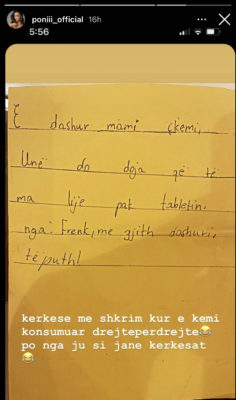 poniii_official 16h
5:56
E dashur mami çkemi,
Unë do doja që të
ma lije pak tabletin.
nga: Frenk, me gjith dashuri,
të puth!
kerkese me shkrim kur e kemi
konsumuar drejteperdrejte😂
po nga ju si jane kerkesat
😂